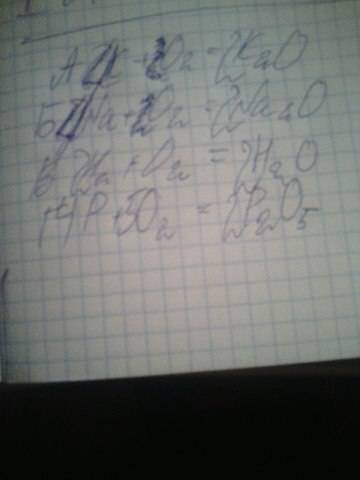 А 4K + O₂ = 2K₂O
Б 4Na + O₂ = 2Na₂O
В 2H₂ + O₂ = 2H₂O
Г 4P + 5O₂ = 2P₂O₅